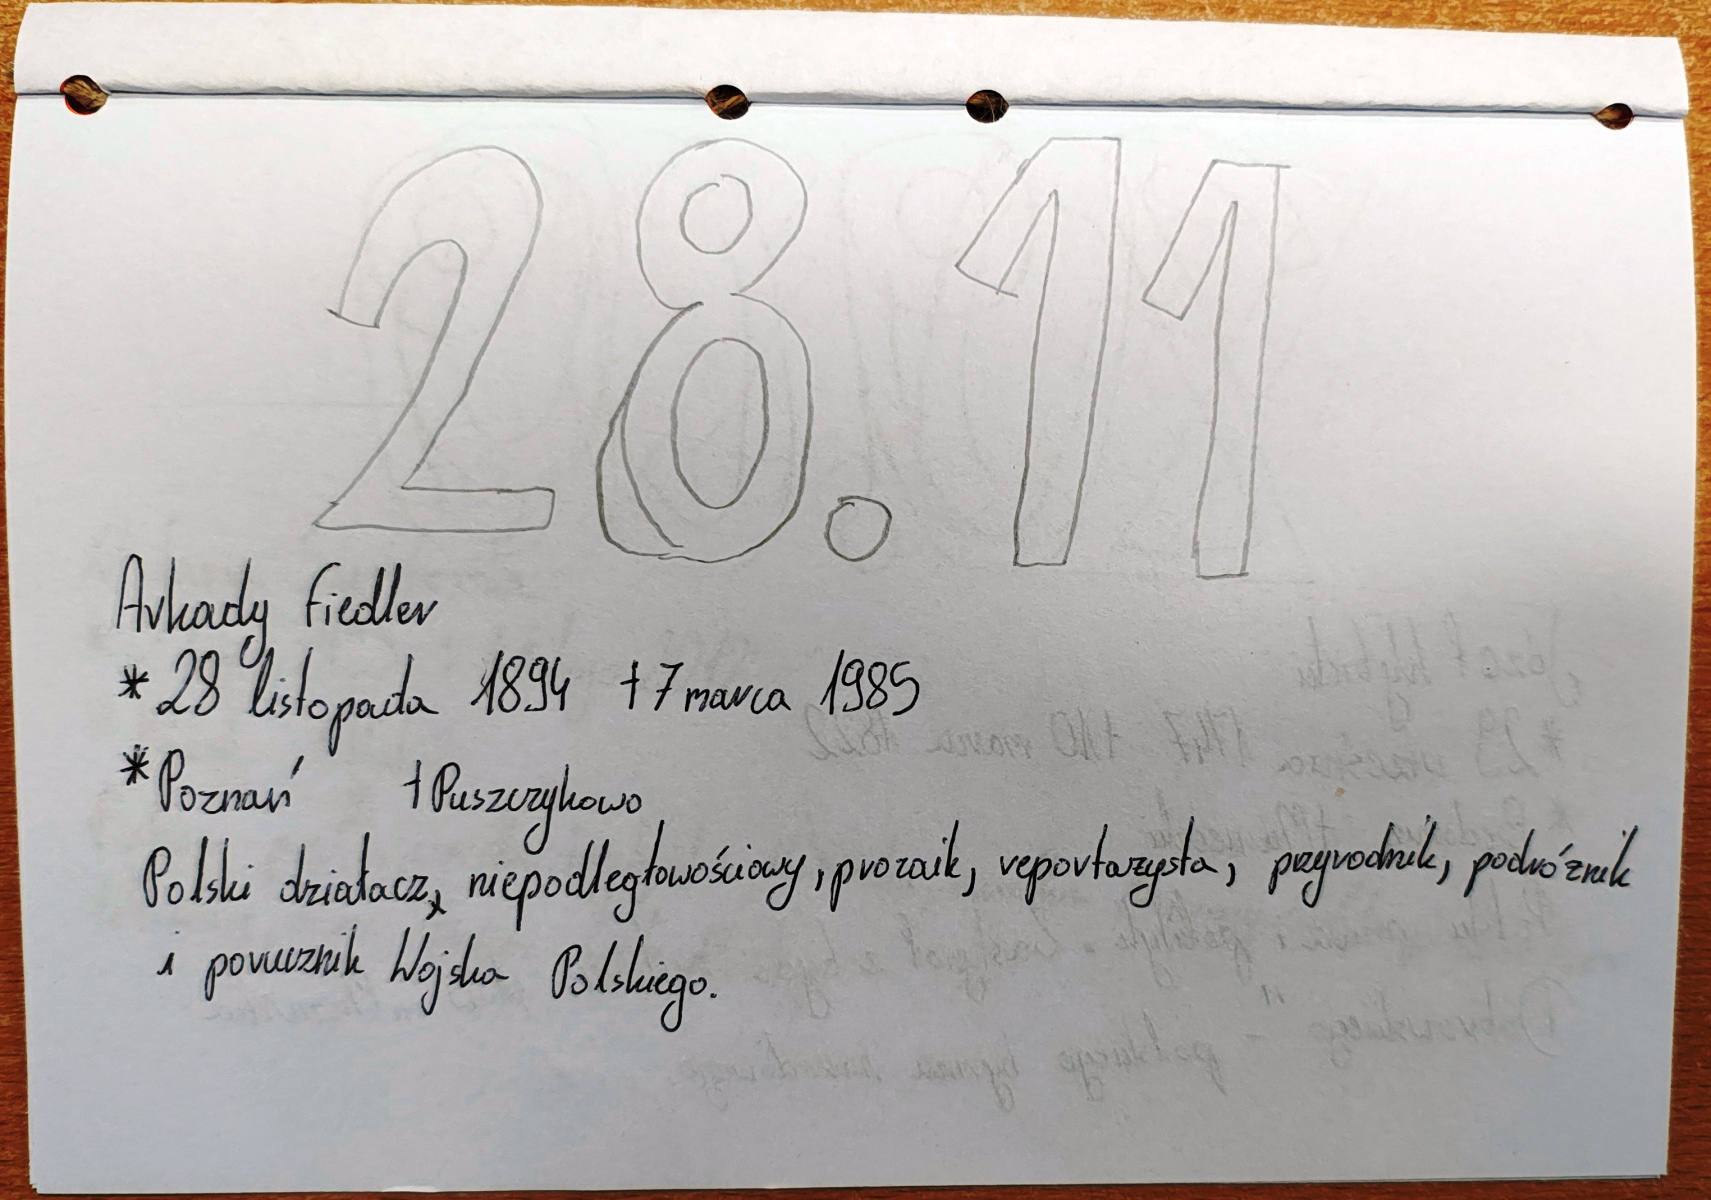 28.11
Arkady Fiedler
* 28 listopada 1894 † 7 marca 1985
* Poznań † Puszczykowo
Polski działacz, niepodległowościowy, prozaik, reportarzysta, przyrodnik, podróżnik
i porucznik Wojska Polskiego.